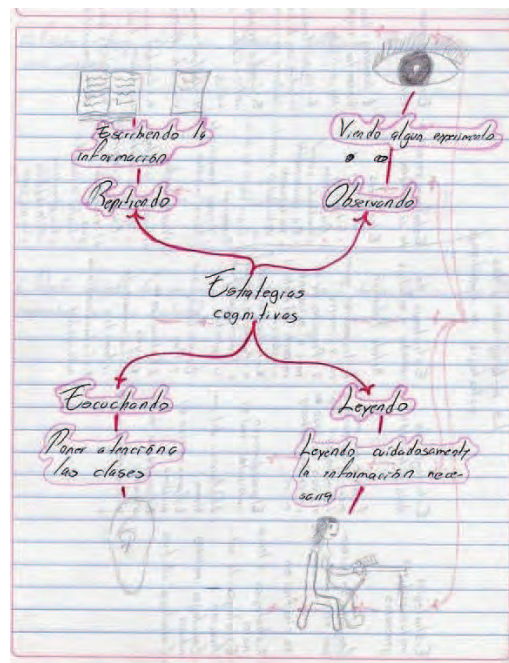 Escribendo la
información
Repitiendo
Viendo algun experimento
Observando
Estrategias
cognitivas
Escuchando
Poner atención a
las clases
Leyendo
Leyendo cuidadosamente
la información nece-
saria